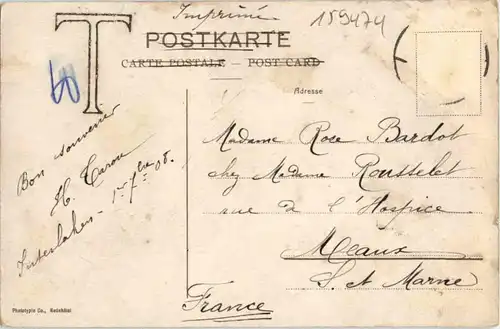 Imprimé
159474
T
POSTKARTE
CARTE POSTALE – POST CARD
Adresse
60
Bon souvenir
H. Caron
Interlaken – 1er 7bre 08.
Madame Rose Bardot
chez Madame Rousselet
rue de l'Hospice
Meaux
S. et Marne
France
Phototypie Co., Neuchâtel